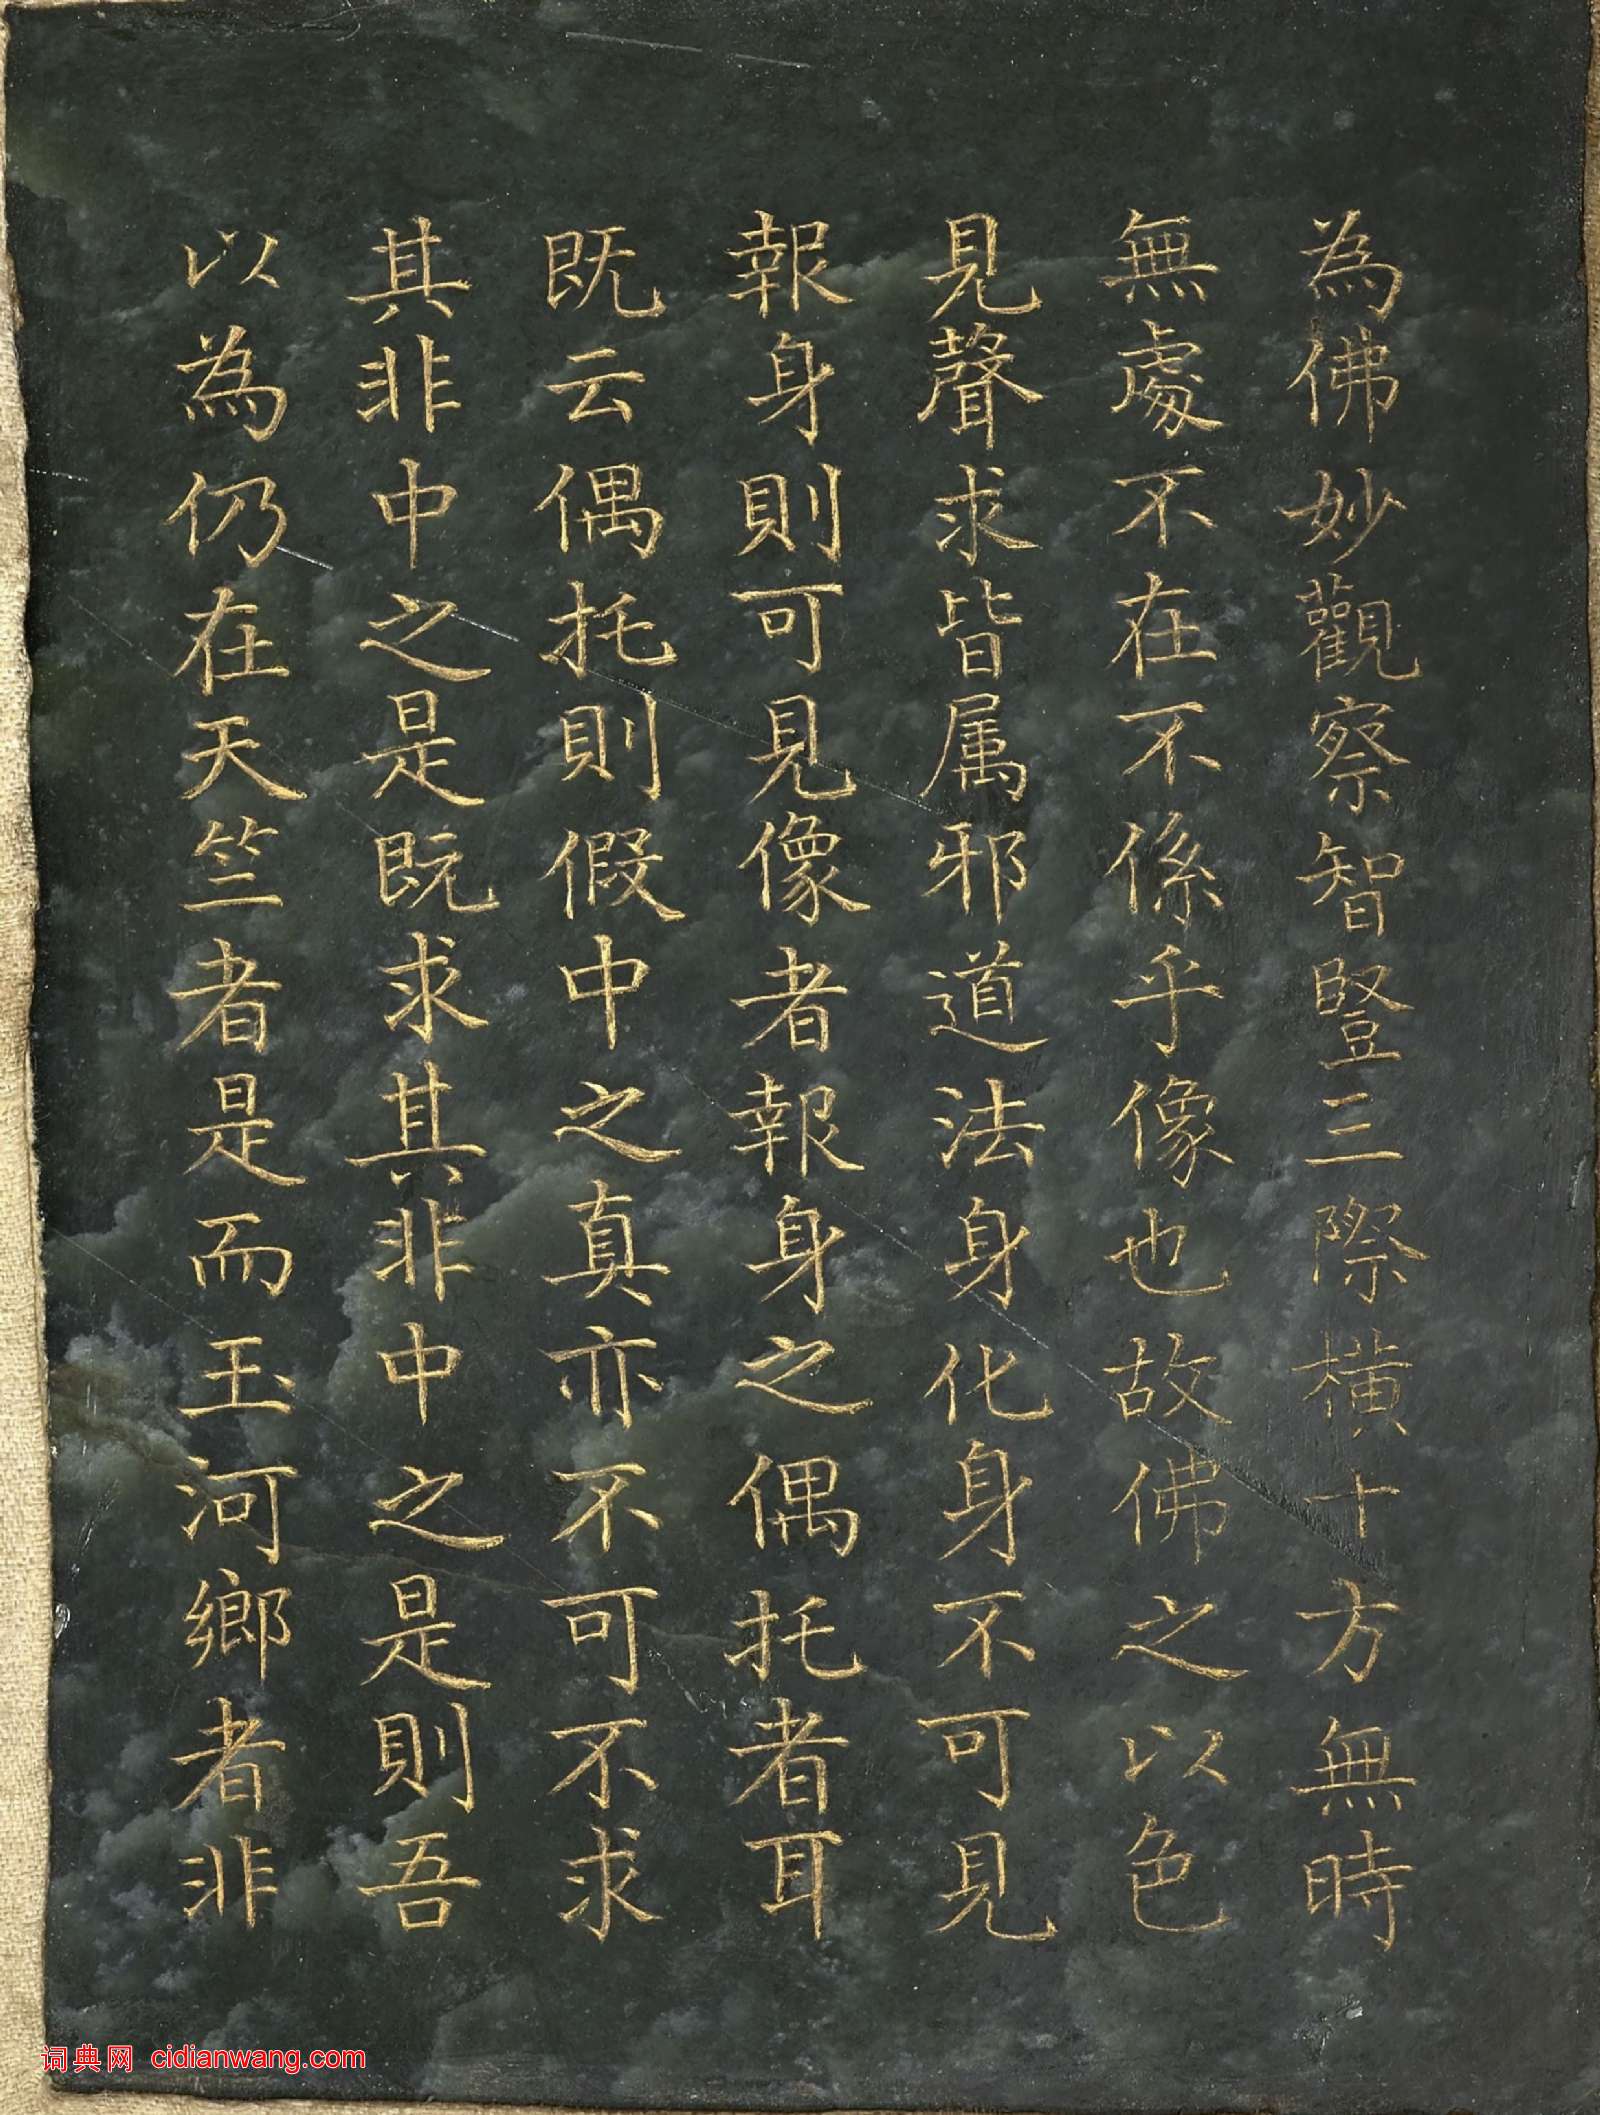 為佛妙觀察智豎三際橫十方無時
無處不在不係乎像也故佛之以色
見聲求皆属邪道法身化身不可見
報身則可見像者報身之偶托者耳
既云偶托則假中之真亦不可不求
其非中之是既求其非中之是則吾
以為仍在天竺者是而玉河鄉者非
词典网 cidianwang.com